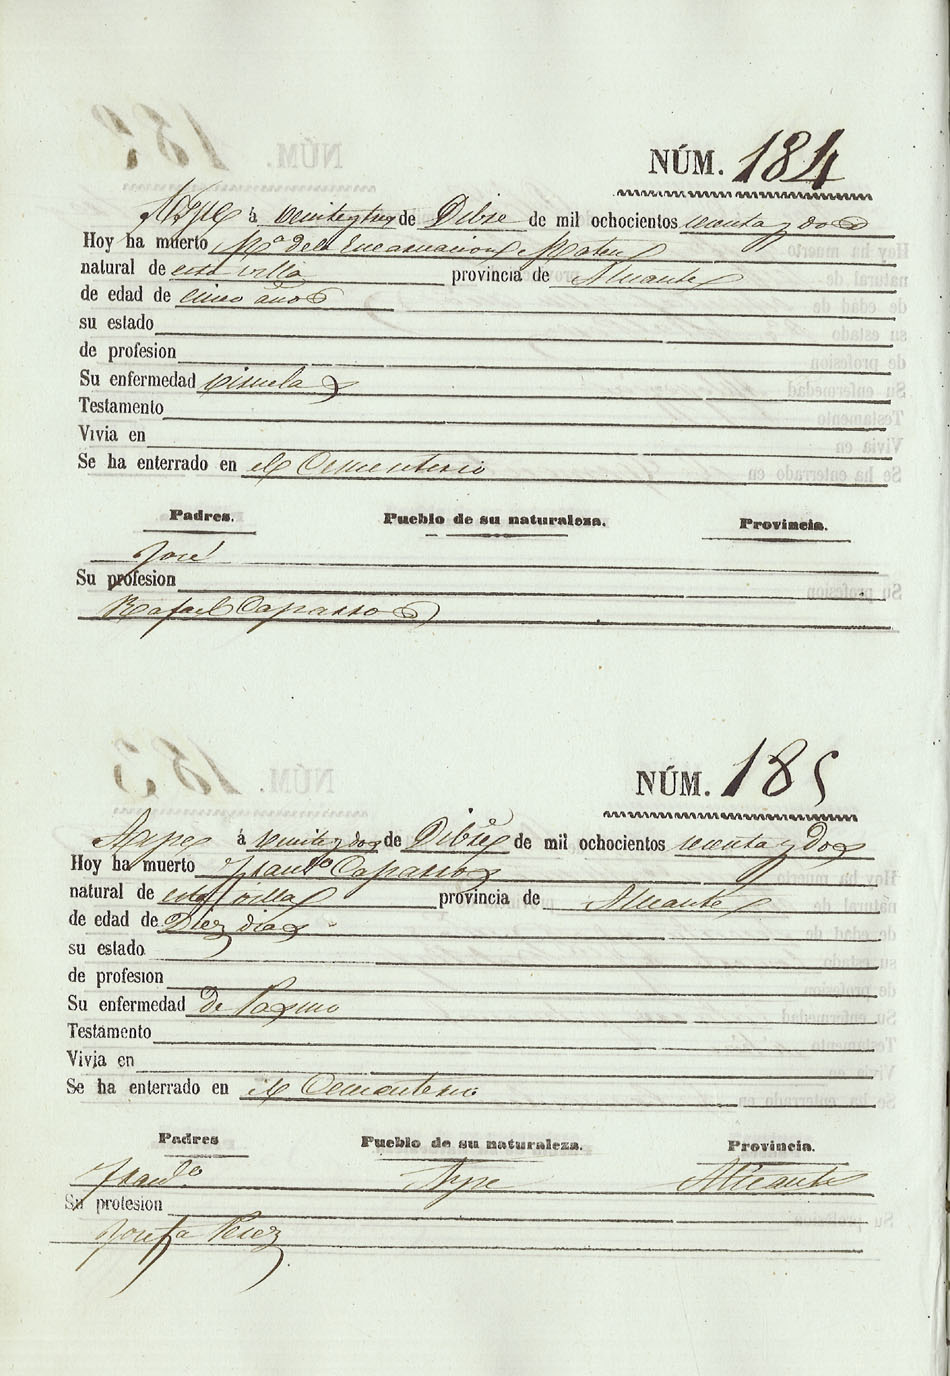 NÚM. 184
Aspe á veinte y tres de Dibre de mil ochocientos setenta y dos
Hoy ha muerto Mª de la Encarnacion Mateu
natural de esta villa provincia de Alicante
de edad de cinco años
su estado
de profesion
Su enfermedad viruela
Testamento
Vivia en
Se ha enterrado en el Cementerio
Padres. Pueblo de su naturaleza. Provincia.
José
Su profesion
Rafael Caparros
NÚM. 185
Aspe á veinte y dos de Dibre de mil ochocientos setenta y Dos
Hoy ha muerto Franco Caparros
natural de esta villa provincia de Alicante
de edad de Diez dias
su estado
de profesion
Su enfermedad de Pasmo
Testamento
Vivia en
Se ha enterrado en el Cementerio
Padres Pueblo de su naturaleza. Provincia.
Aspe Alicante
Su profesion
Josefa Perez